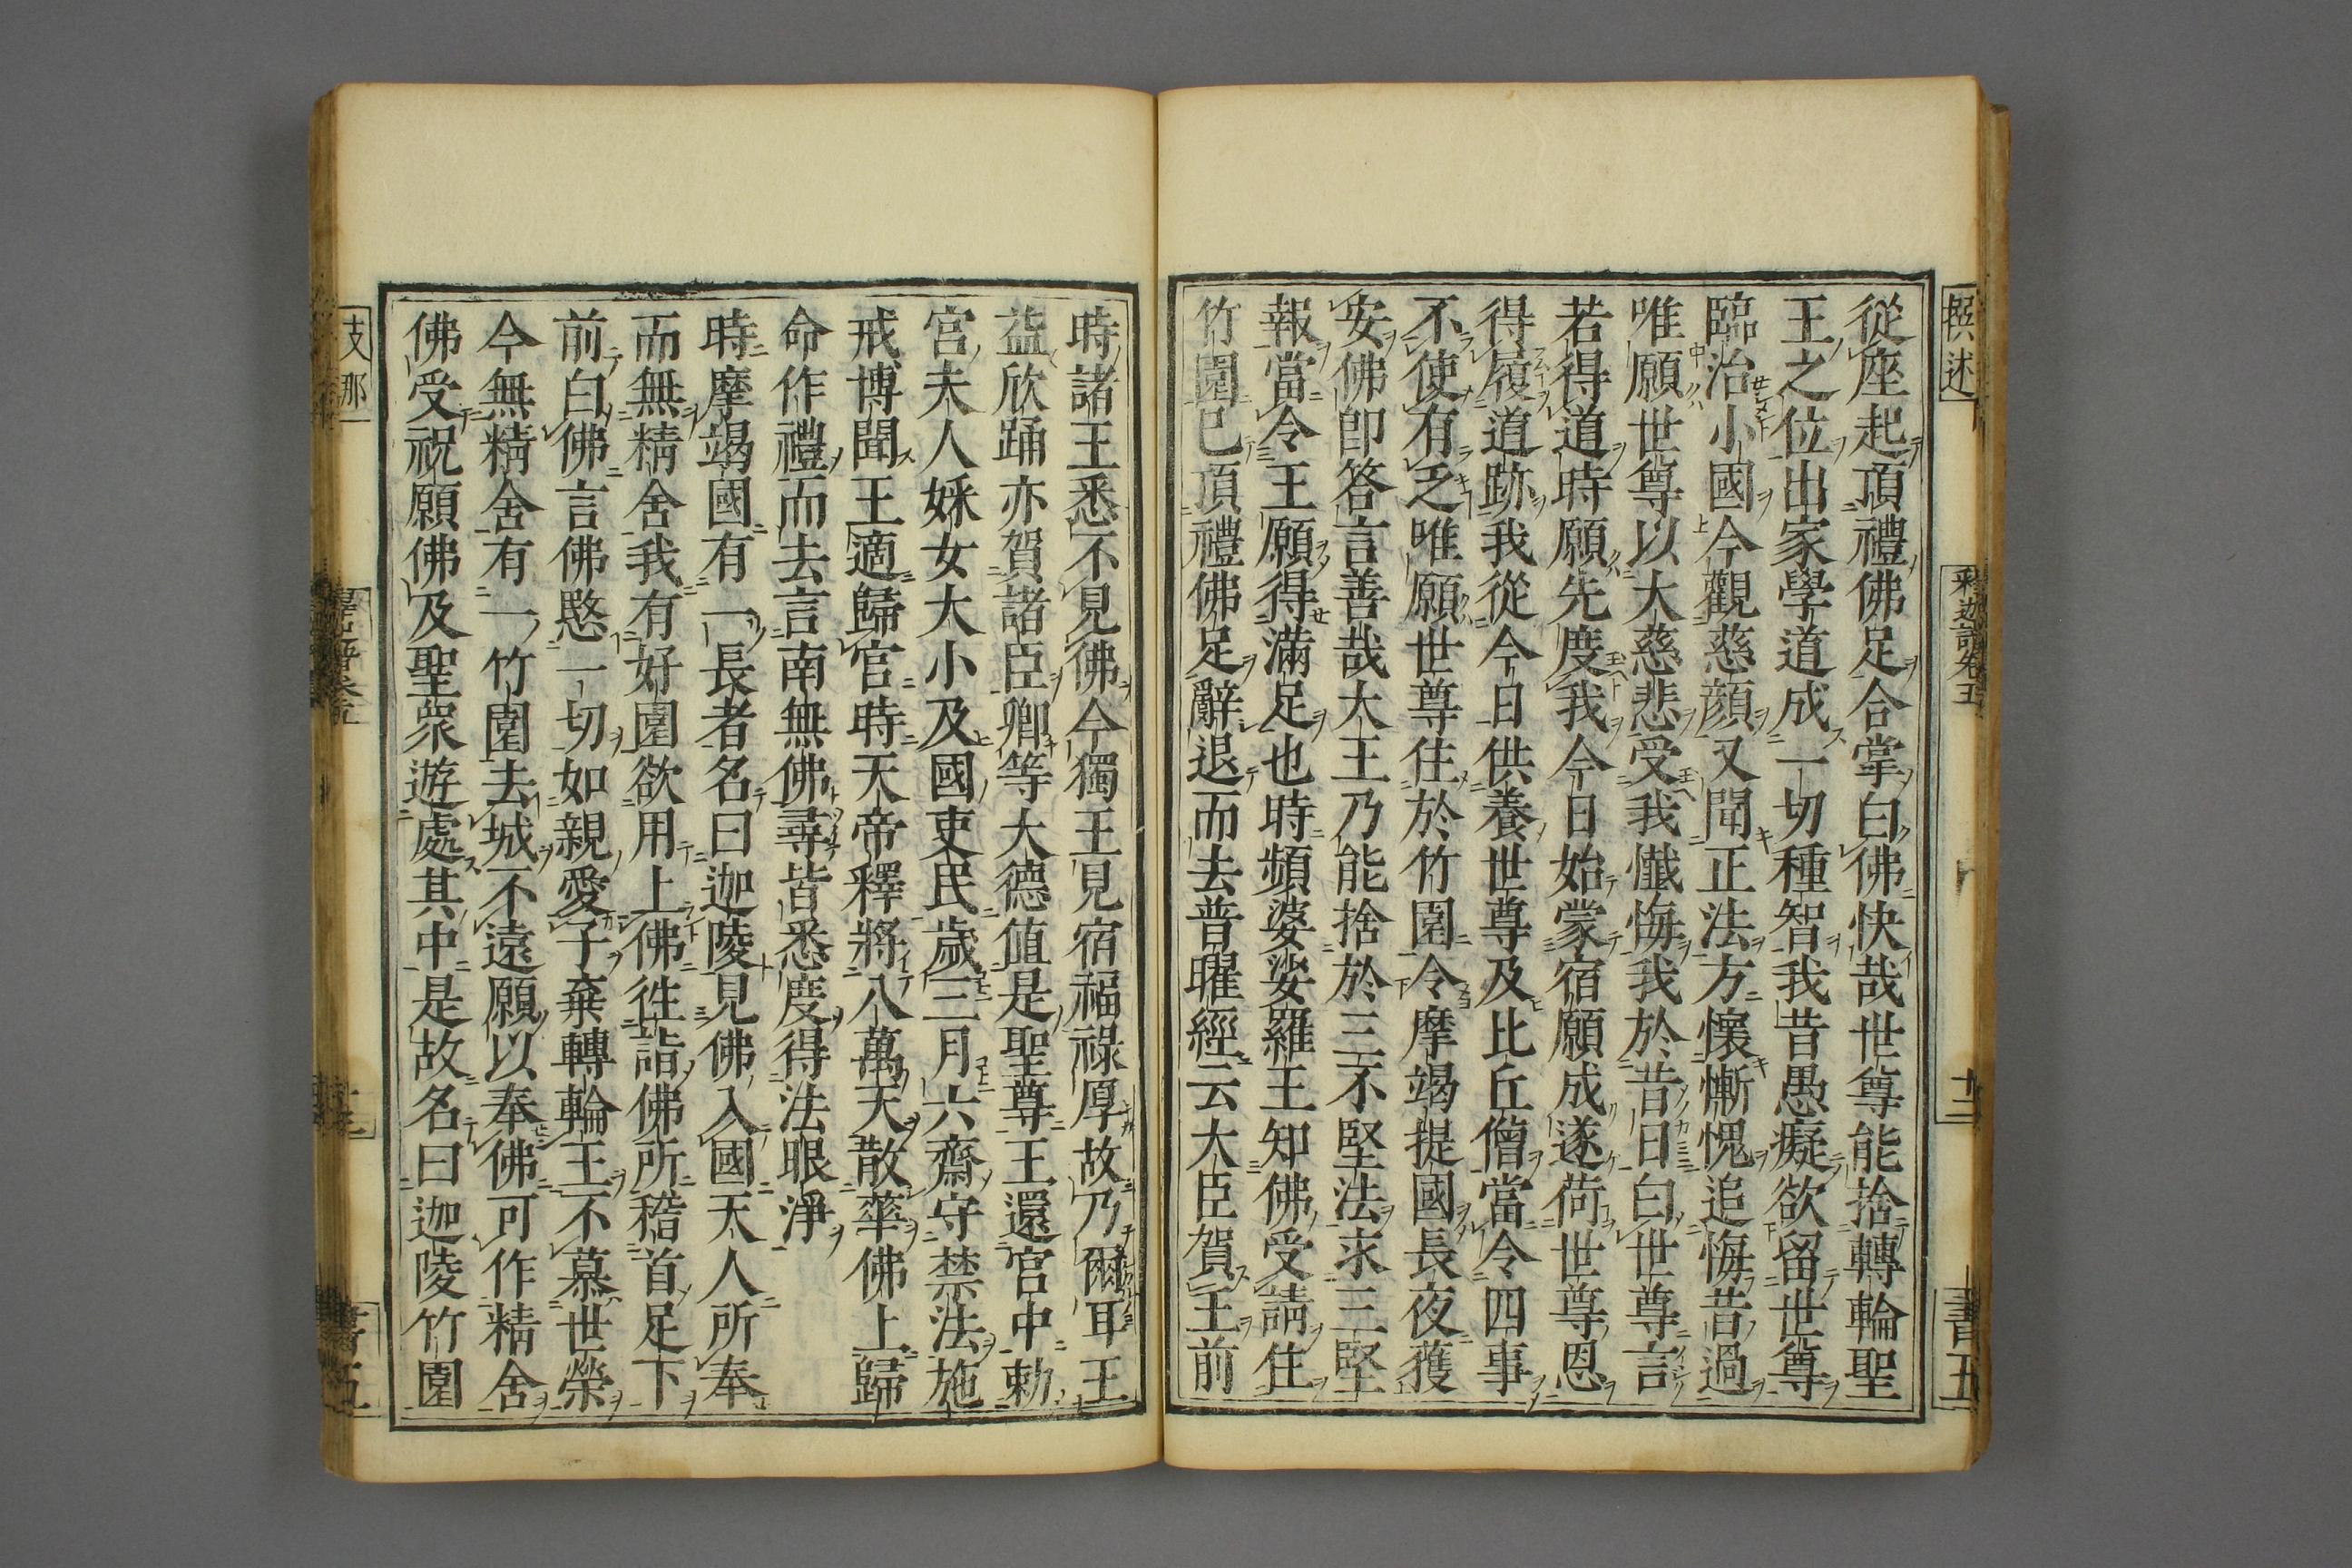 撰述
釋迦譜卷五
十二
書五
從座起頂禮佛足合掌白佛快哉世尊能捨轉輪聖
王之位出家學道成一切種智我昔愚癡欲留世尊
臨治小國今觀慈顏又聞正法方懷慚愧追悔昔過
唯願世尊以大慈悲受我懺悔我於昔日白世尊言
若得道時願先度我今日始蒙宿願成遂荷世尊恩
得履道跡我從今日供養世尊及比丘僧當令四事
不使有乏唯願世尊住於竹園令摩竭提國長夜獲
安佛即答言善哉大王乃能捨於三不堅法求三堅
報當令王願得滿足也時頻婆娑羅王知佛受請住
竹園已頂禮佛足辭退而去普曜經云大臣賀王前
時諸王悉不見佛今獨王見宿福祿厚故乃爾耳王
益欣踊亦賀諸臣卿等大德值是聖尊王還宮中勅
宮夫人婇女大小及國吏民歲三月六齋守禁法施
戒博聞王適歸宮時天帝釋將八萬天散華佛上歸
命作禮而去言南無佛尋皆悉度得法眼淨
時摩竭國有一長者名曰迦陵見佛入國天人所奉
而無精舍我有好園欲用上佛徃詣佛所稽首足下
前白佛言佛愍一切如親愛子棄轉輪王不慕世榮
今無精舍有一竹園去城不遠願以奉佛可作精舍
佛受祝願佛及聖衆遊處其中是故名曰迦陵竹園
支那
書五